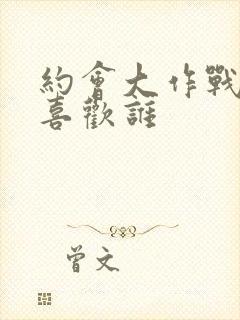 約會大作戰
喜歡誰
曾文